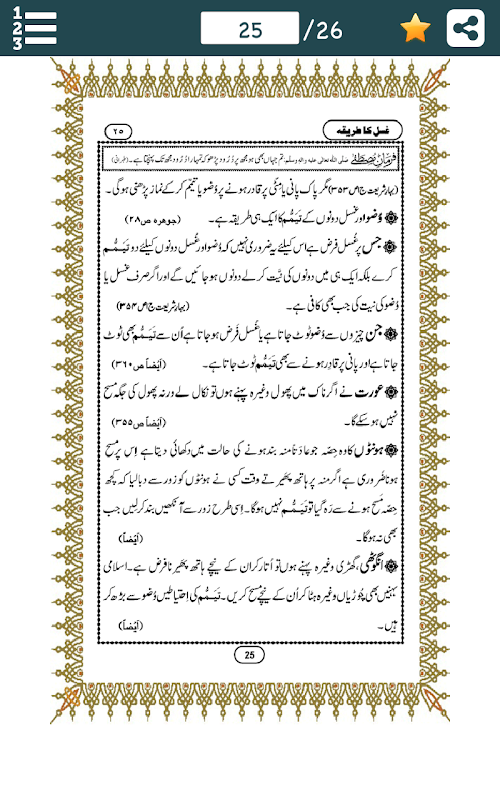 1
2
3
25
/26
غسل کا طریقہ
۲۵
فرمانِ مصطفےٰ صلی اللہ تعالیٰ علیہ واٰلہ وسلم: تم جہاں بھی ہو مجھ پر دُرُود پڑھو کہ تمہارا دُرُود مجھ تک پہنچتا ہے۔ (طبرانی)
(بہارِ شریعت ج۱ص۳۵۳) مگر پاک پانی یا مٹی پر قادر ہونے پر وُضو یا تیمم کر کے نماز پڑھنی ہو گی۔
وُضو اور غسل دونوں کے تَیَمُّم کا ایک ہی طریقہ ہے۔ (جوہرہ ص۲۸)
جس پر غُسل فرض ہے اس کیلئے یہ ضروری نہیں کہ وُضو اور غُسل دونوں کیلئے دو تَیَمُّم
کرے بلکہ ایک ہی میں دونوں کی نیّت کر لے دونوں ہو جائیں گے اور اگر صرف غسل یا
وُضو کی نیت کی جب بھی کافی ہے۔ (بہارِ شریعت ج۱ص۳۵۴)
جن چیزوں سے وُضو ٹوٹ جاتا ہے یا غُسل فرض ہو جاتا ہے اُن سے تَیَمُّم بھی ٹوٹ
جاتا ہے اور پانی پر قادِر ہونے سے بھی تَیَمُّم ٹوٹ جاتا ہے۔ (اَیْضاً ص۳۶۰)
عورت نے اگر ناک میں پھول وغیرہ پہنے ہوں تو نکال لے ورنہ پھول کی جگہ مسح
نہیں ہو سکے گا۔ (اَیْضاً ص۳۵۵)
ہونٹوں کا وہ حصّہ جو عادَتاً منہ بند ہونے کی حالت میں دکھائی دیتا ہے اِس پر مسح
ہونا ضَروری ہے اگر منہ پر ہاتھ پھیرتے وقت کسی نے ہونٹوں کو زور سے دبا لیا کہ کچھ
حصّہ مَسح ہونے سے رَہ گیا تو تَیَمُّم نہیں ہو گا۔ اِسی طرح زور سے آنکھیں بند کر لیں جب
بھی نہ ہو گا۔ (اَیْضاً)
انگوٹھی، گھڑی وغیرہ پہنے ہوں تو اُتار کر ان کے نیچے ہاتھ پھیرنا فرض ہے۔ اسلامی
بہنیں بھی چُوڑیاں وغیرہ ہٹا کر اُن کے نیچے مسح کریں۔ تَیَمُّم کی اِحتیاطیں وُضو سے بڑھ کر
ہیں۔ (اَیْضاً)
25